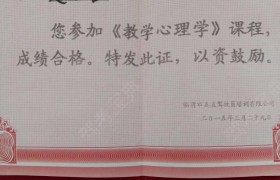 您参加《教学心理学》课程,
成绩合格。特发此证,以资鼓励。
二〇一五年三月二十九日